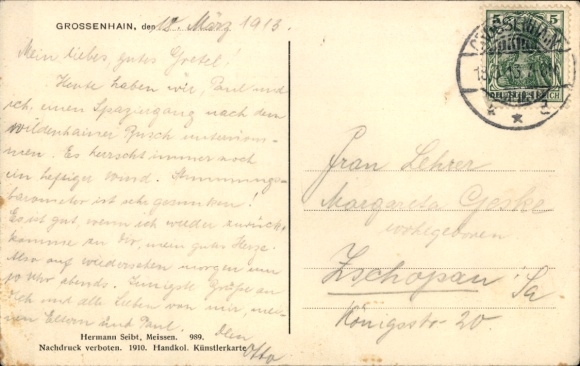 GROSSENHAIN, den 12. März 1913
Mein liebes, gutes Gretel!
Heute haben wir, Paul und
ich, einen Spaziergang nach dem
Wildenhainer Busch unternom-
men. Es herrscht immer noch
ein heftiger Wind. Stimmungs-
barometer ist sehr gesunken!
Es ist gut, wenn ich wieder zurück-
komme an Dir, mein gutes Herze.
Also auf Wiedersehen morgen um
10 Uhr abends. Innigste Grüße an
Dich und alle Lieben von mir, mei-
nen Eltern und Paul. Dein
Otto
Hermann Seibt, Meissen. 989.
Nachdruck verboten. 1910. Handkol. Künstlerkarte
5 5
GROSSENHAIN
Frau Lehrer
Margareta Geske
wohlgeboren
Zschopau i/Sa
Königsstr. 20